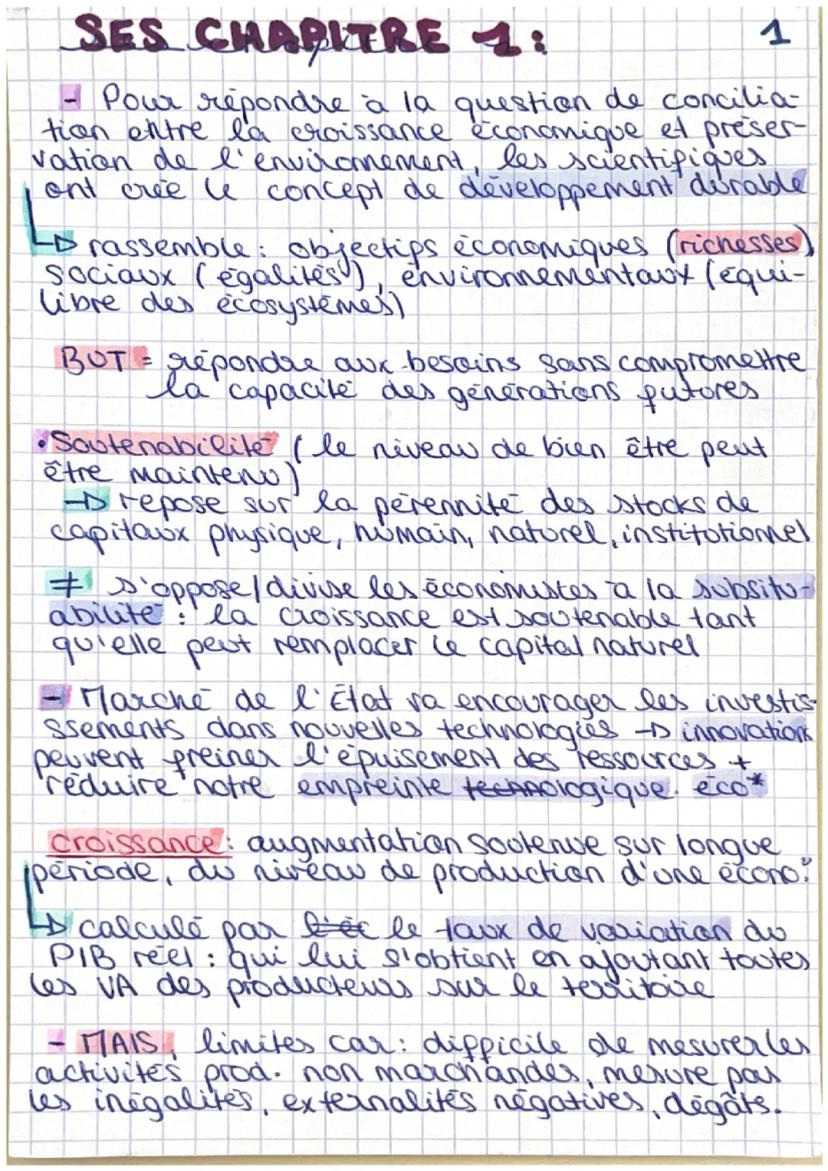 SES CHAPITRE 1 : 1
- Pour répondre à la question de concilia-
tion entre la croissance économique et préser-
vation de l'environnement, les scientifiques
ont crée le concept de développement durable
↳ rassemble : objectifs économiques (richesses)
sociaux (égalités), environnementaux (équi-
libre des écosystèmes)
BUT = répondre aux besoins sans compromettre
la capacité des générations futures
• Soutenabilité (le niveau de bien être peut
être maintenu)
→ repose sur la pérennité des stocks de
capitaux physique, humain, naturel, institutionnel
≠ s'oppose/divise les économistes à la subsitu-
abilité : la croissance est soutenable tant
qu'elle peut remplacer le capital naturel
- Marché de l'État va encourager les investis-
ssements dans nouvelles technologies → innovations
peuvent freiner l'épuisement des ressources +
réduire notre empreinte technologique. éco*
croissance : augmentation soutenue sur longue
période, du niveau de production d'une écono.
↳ calculé par l'éc le taux de variation du
PIB réel : qui lui s'obtient en ajoutant toutes
les VA des producteurs sur le territoire
- MAIS, limites car : difficile de mesurer les
activités prod. non marchandes, mesure pas
les inégalités, externalités négatives, dégâts.